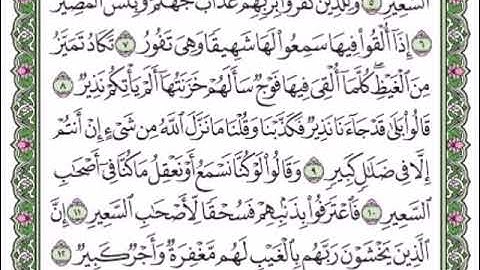 السَّعِيرِ ٥ وَلِلَّذِينَ كَفَرُوا بِرَبِّهِمْ عَذَابُ جَهَنَّمَ وَبِئْسَ الْمَصِيرُ
٦ إِذَا أُلْقُوا فِيهَا سَمِعُوا لَهَا شَهِيقًا وَهِيَ تَفُورُ ٧ تَكَادُ تَمَيَّزُ
مِنَ الْغَيْظِ ۖ كُلَّمَا أُلْقِيَ فِيهَا فَوْجٌ سَأَلَهُمْ خَزَنَتُهَا أَلَمْ يَأْتِكُمْ نَذِيرٌ ٨
قَالُوا بَلَىٰ قَدْ جَاءَنَا نَذِيرٌ فَكَذَّبْنَا وَقُلْنَا مَا نَزَّلَ اللَّهُ مِن شَيْءٍ إِنْ أَنتُمْ
إِلَّا فِي ضَلَالٍ كَبِيرٍ ٩ وَقَالُوا لَوْ كُنَّا نَسْمَعُ أَوْ نَعْقِلُ مَا كُنَّا فِي أَصْحَابِ
السَّعِيرِ ١٠ فَاعْتَرَفُوا بِذَنبِهِمْ فَسُحْقًا لِّأَصْحَابِ السَّعِيرِ ١١ إِنَّ
الَّذِينَ يَخْشَوْنَ رَبَّهُم بِالْغَيْبِ لَهُم مَّغْفِرَةٌ وَأَجْرٌ كَبِيرٌ ١٢